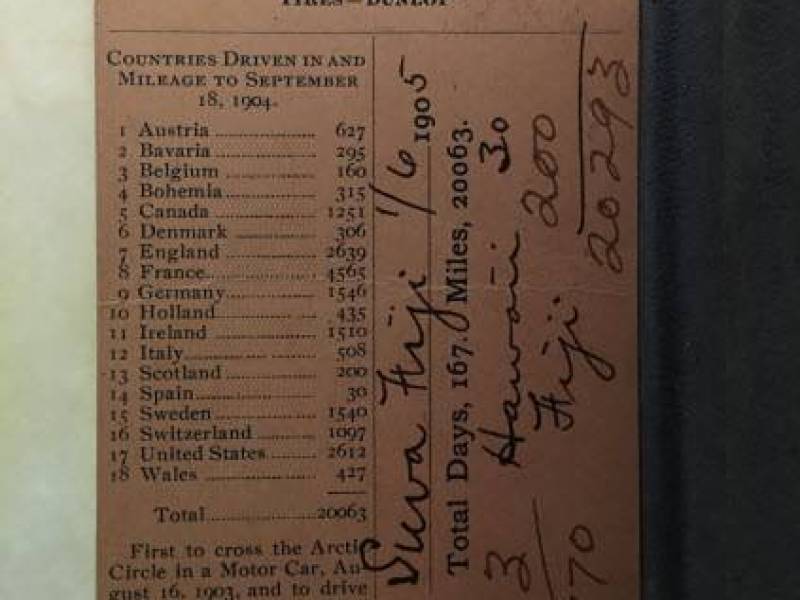 TIRES—DUNLOP
COUNTRIES DRIVEN IN AND
MILEAGE TO SEPTEMBER
18, 1904.
1 Austria 627
2 Bavaria 295
3 Belgium 160
4 Bohemia 315
5 Canada 1251
6 Denmark 306
7 England 2639
8 France 4565
9 Germany 1546
10 Holland 435
11 Ireland 1510
12 Italy 508
13 Scotland 200
14 Spain 30
15 Sweden 1540
16 Switzerland 1097
17 United States 2612
18 Wales 427
Total 20063
First to cross the Arctic
Circle in a Motor Car, Au-
gust 16, 1903, and to drive
Suva Fiji 1/6 1905
Total Days, 167. Miles, 20063.
3 Hawaii 30
Fiji 200
170 20293